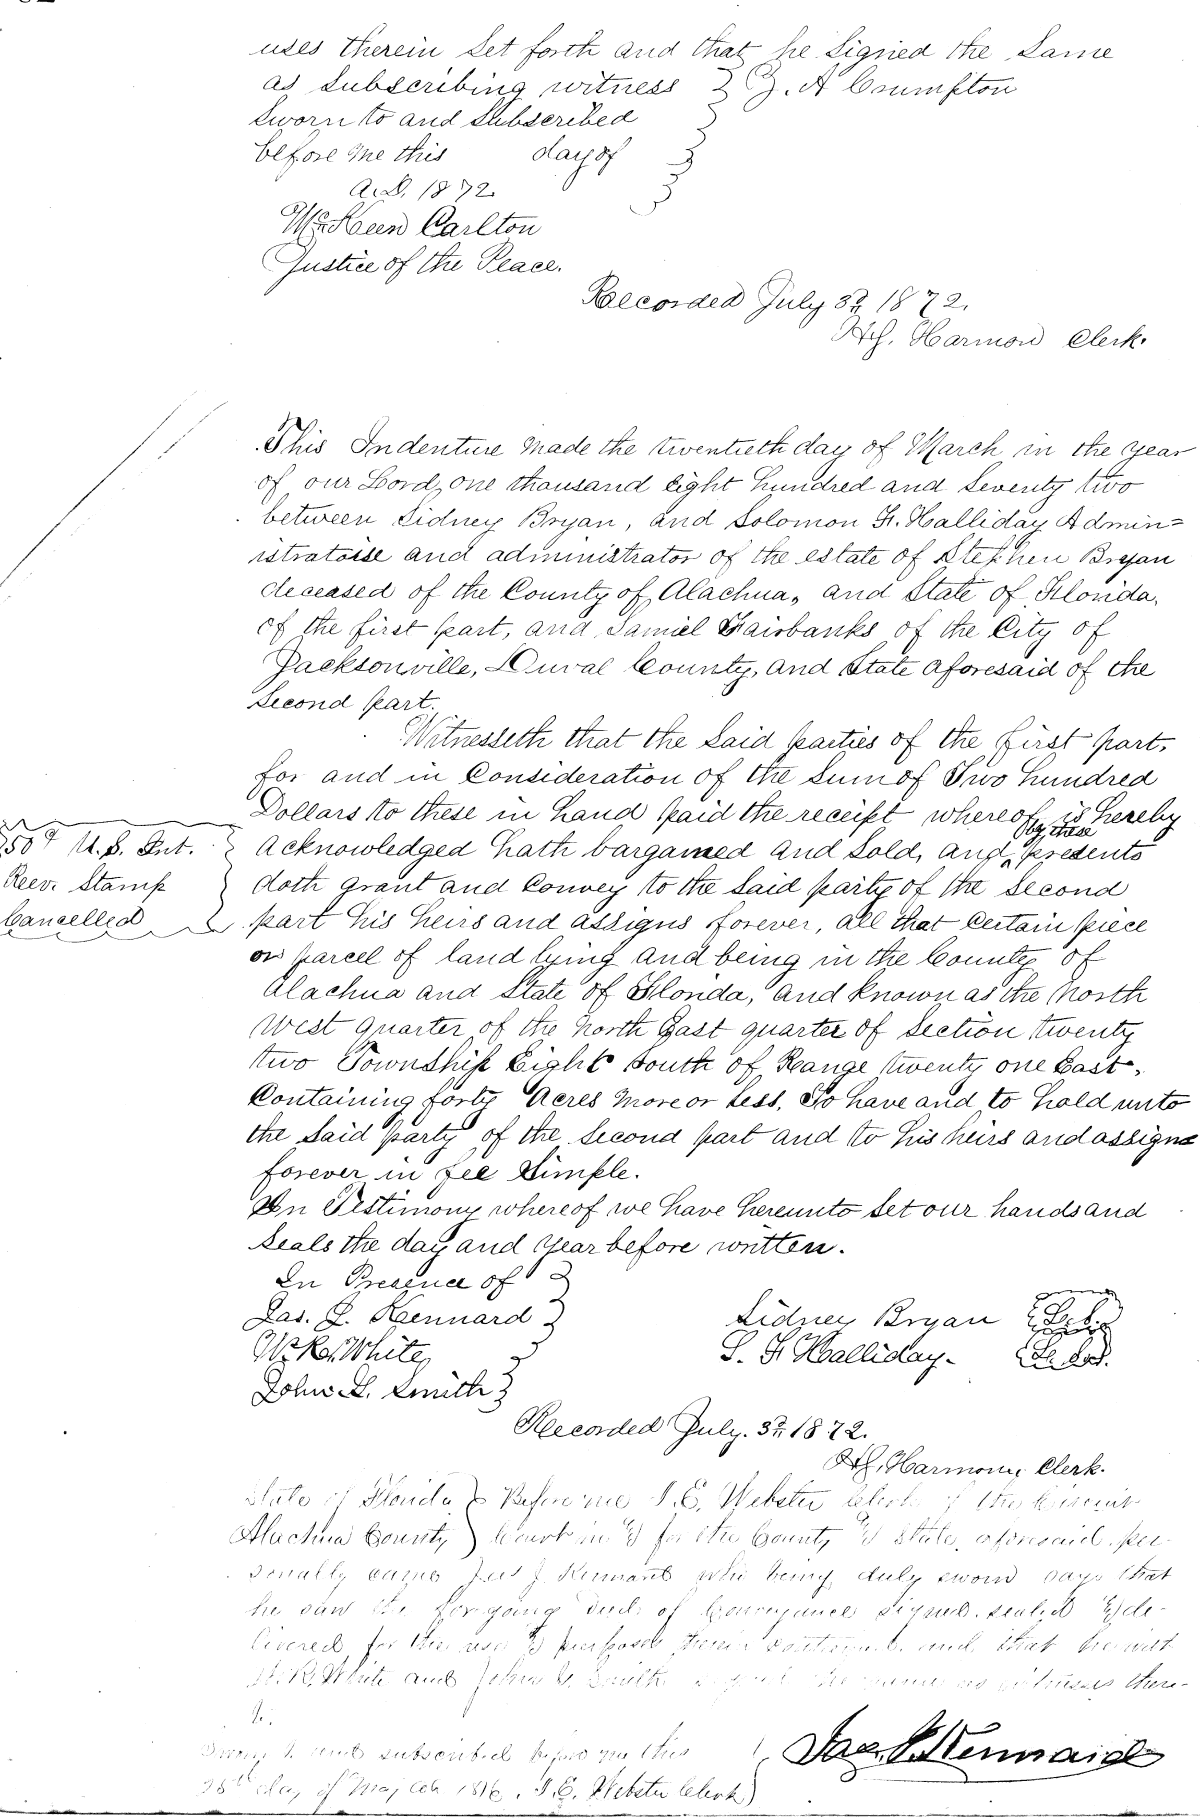 uses therein set forth and that he signed the same
as subscribing witness } J. A Crumpton
Sworn to and subscribed
before me this day of
A.D. 1872
McKeen Carlton
Justice of the Peace.
Recorded July 3rd 1872.
Harmon Clerk.
This Indenture made the twentieth day of March in the year
of our Lord, one thousand eight hundred and seventy two
between Sidney Bryan, and Solomon F. Halliday Admin=
and administrator of the estate of Stephen Bryan
deceased of the County of Alachua, and State of Florida,
of the first part, and Samiel Fairbanks of the City of
Jacksonville, Duval County, and State aforesaid of the
second part.
Witnesseth that the said parties of the first part,
for and in Consideration of the Sum of Two hundred
Dollars to these in hand paid the receipt whereof is hereby
50c U.S. Int.
Reev. Stamp
Cancelled
acknowledged hath bargained and sold, and by these presents
doth grant and Convey to the said party of the second
part his heirs and assigns forever, all that Certain piece
or parcel of land lying and being in the County of
Alachua and State of Florida, and known as the North
West quarter of the North East quarter of Section twenty
two Township Eight South of Range twenty one East,
Containing forty Acres more or less, To have and to hold unto
the said party of the second part and to his heirs and assigns
forever in fee simple.
In Testimony whereof we have hereunto set our hands and
seals the day and year before written.
In Presence of
Jas. J. Kennard
W. R. White
John L. Smith
Sidney Bryan
S. F. Halliday
Recorded July. 3rd 1872.
Harmon, Clerk.
State of Florida } Before me J. C. Webster Clerk of the Circuit
Alachua County } Court in & for the County & State, aforesaid, per-
sonally came Jas J. Kennard who being duly sworn says that
he saw the forgoing deed of Conveyance signed, sealed & de-
livered for the uses & purposes and that he with
W. R. White and John Smith signed the same as witnesses there-
to.
Sworn to and subscribed before me this
25th day of 1876. J. C. Webster Clerk
Jas. J. Kennard